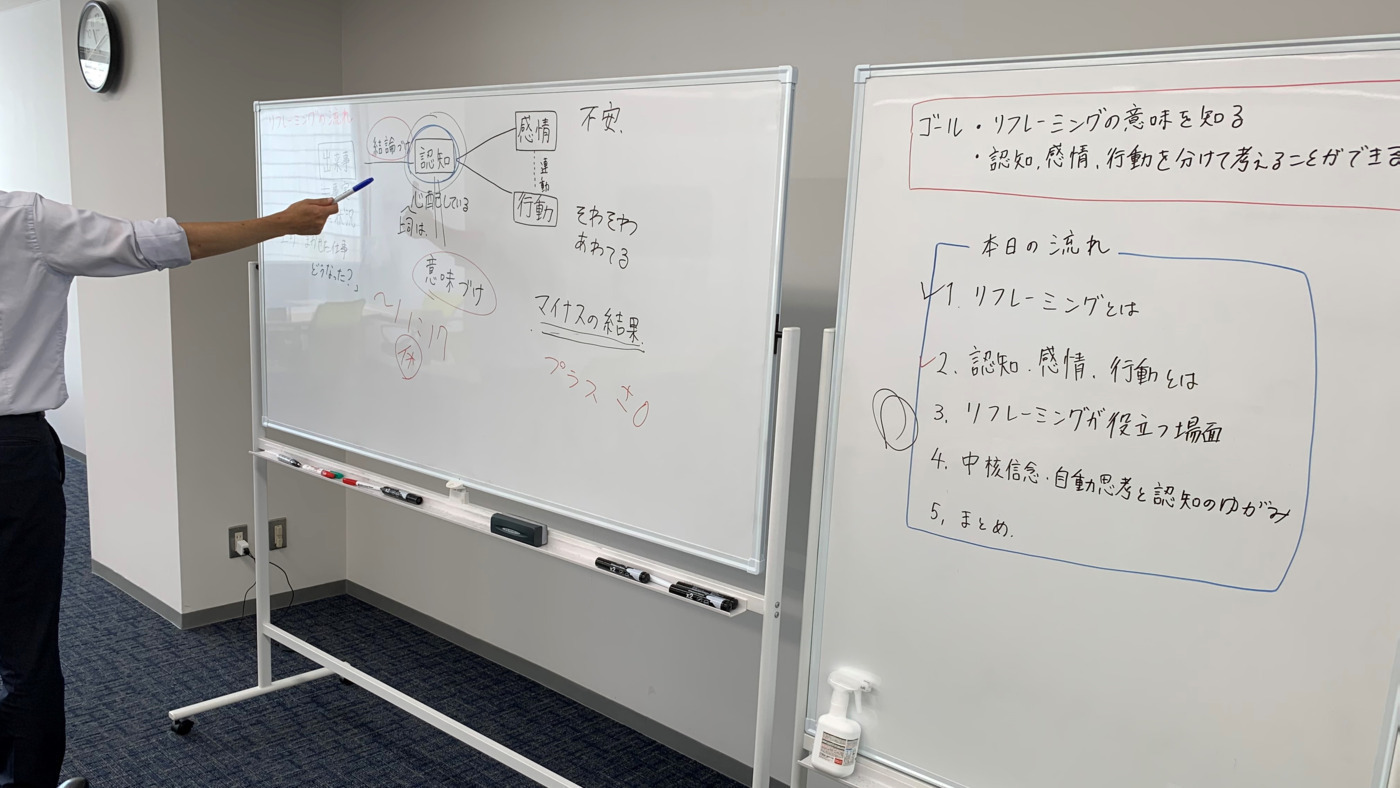 リフレーミングの流れ
出来事
結論づけ
認知
感情
連動
行動
不安.
心配している
上司は、
意味づけ
そわそわ
あわてる
どうなった?」
〜11:17
休
マイナスの結果.
プラス
ゴール・リフレーミングの意味を知る
・認知、感情、行動を分けて考えることができる
本日の流れ
✓1. リフレーミングとは
✓2. 認知、感情、行動とは
3. リフレーミングが役立つ場面
4. 中核信念・自動思考と認知のゆがみ
5, まとめ.